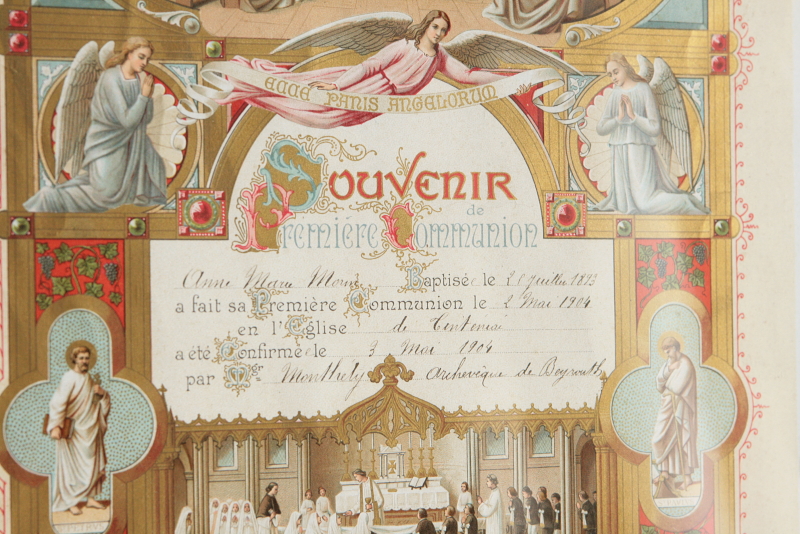 ECCE PANIS ANGELORUM
Souvenir
de
Première Communion
Anne Marie Baptisée le 20 Juillet 1893
a fait sa Première Communion le 2 Mai 1904
en l'Église de
a été Confirmée le 3 Mai 1904
par Mgr Archevêque de Beyrouth